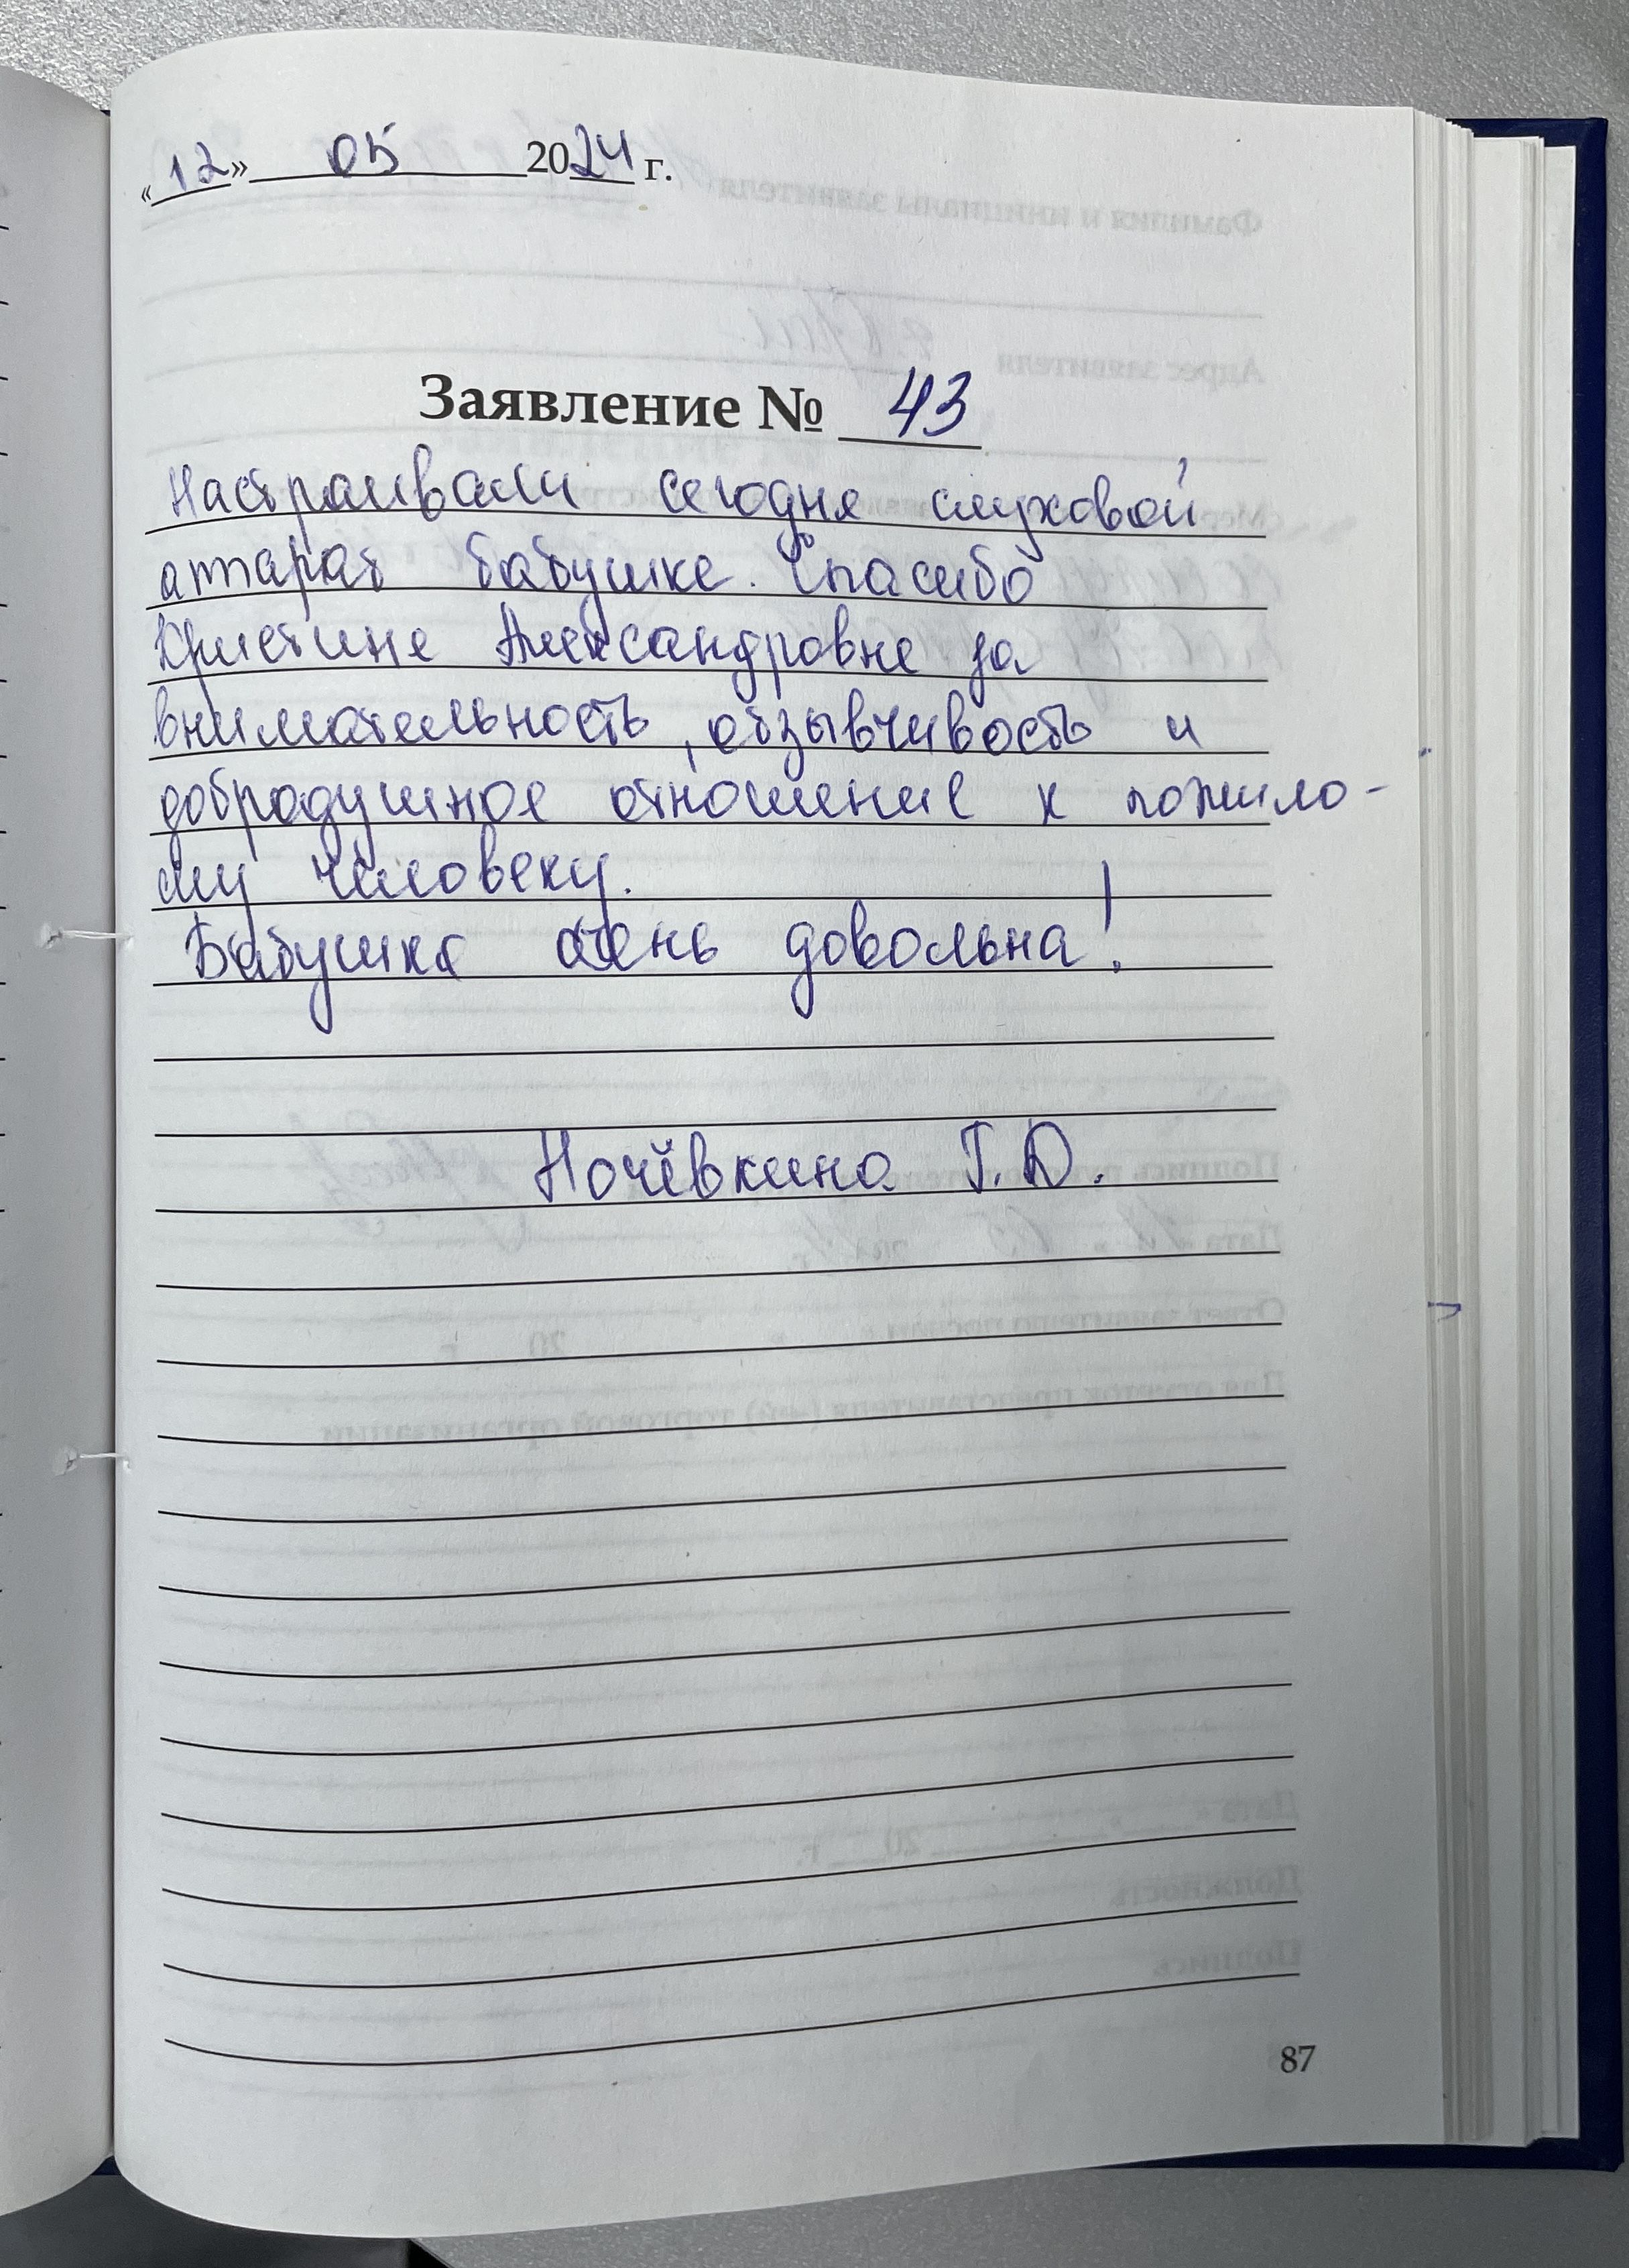 «12» 05 2024 г.
Заявление № 43
Настраивали сегодня слуховой
аппарат бабушке. Спасибо
Кристине Александровне за
внимательность, отзывчивость и
добродушное отношение к пожило-
му человеку.
Бабушка очень довольна!
Ночёвкина Т.D.
87